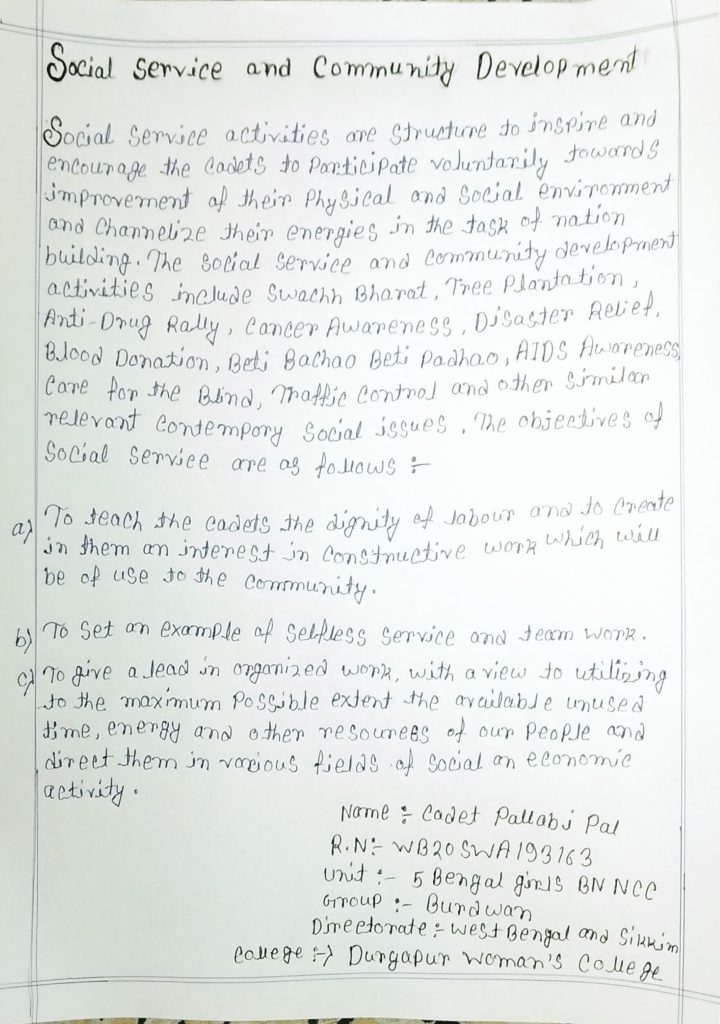 Social Service and Community Development
Social Service activities are Structure to inspire and
encourage the cadets to Participate voluntarily towards
improvement of their Physical and Social environment
and Channelize their energies in the task of nation
building. The Social Service and Community development
activities include Swachh Bharat, Tree Plantation,
Anti-Drug Rally, Cancer Awareness, Disaster Relief,
Blood Donation, Beti Bachao Beti Padhao, AIDS Awareness,
Care for the Blind, Traffic Control and other Similar
relevant Contempory Social issues. The objectives of
Social Service are as follows :-
a) To teach the cadets the dignity of labour and to Create
in them an interest in Constructive work which will
be of use to the Community.
b) To Set an example of Selfless Service and team work.
c) To give a lead in organized work, with a view to utilizing
to the maximum Possible extent the available unused
time, energy and other resources of our People and
direct them in various fields of Social an economic
activity.
Name :- Cadet Pallabi Pal
R.N:- WB20SWA193163
Unit :- 5 Bengal girls BN NCC
Group :- Burdwan
Directorate :- West Bengal and Sikkim
College :-> Durgapur Woman's College